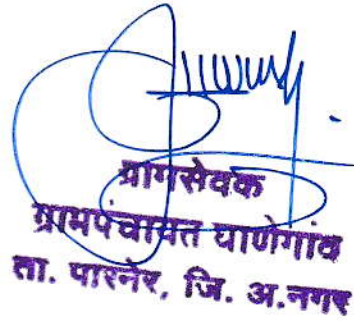 ग्रामसेवक
ग्रामपंचायत वाणेगांव
ता. पारनेर, जि. अ.नगर